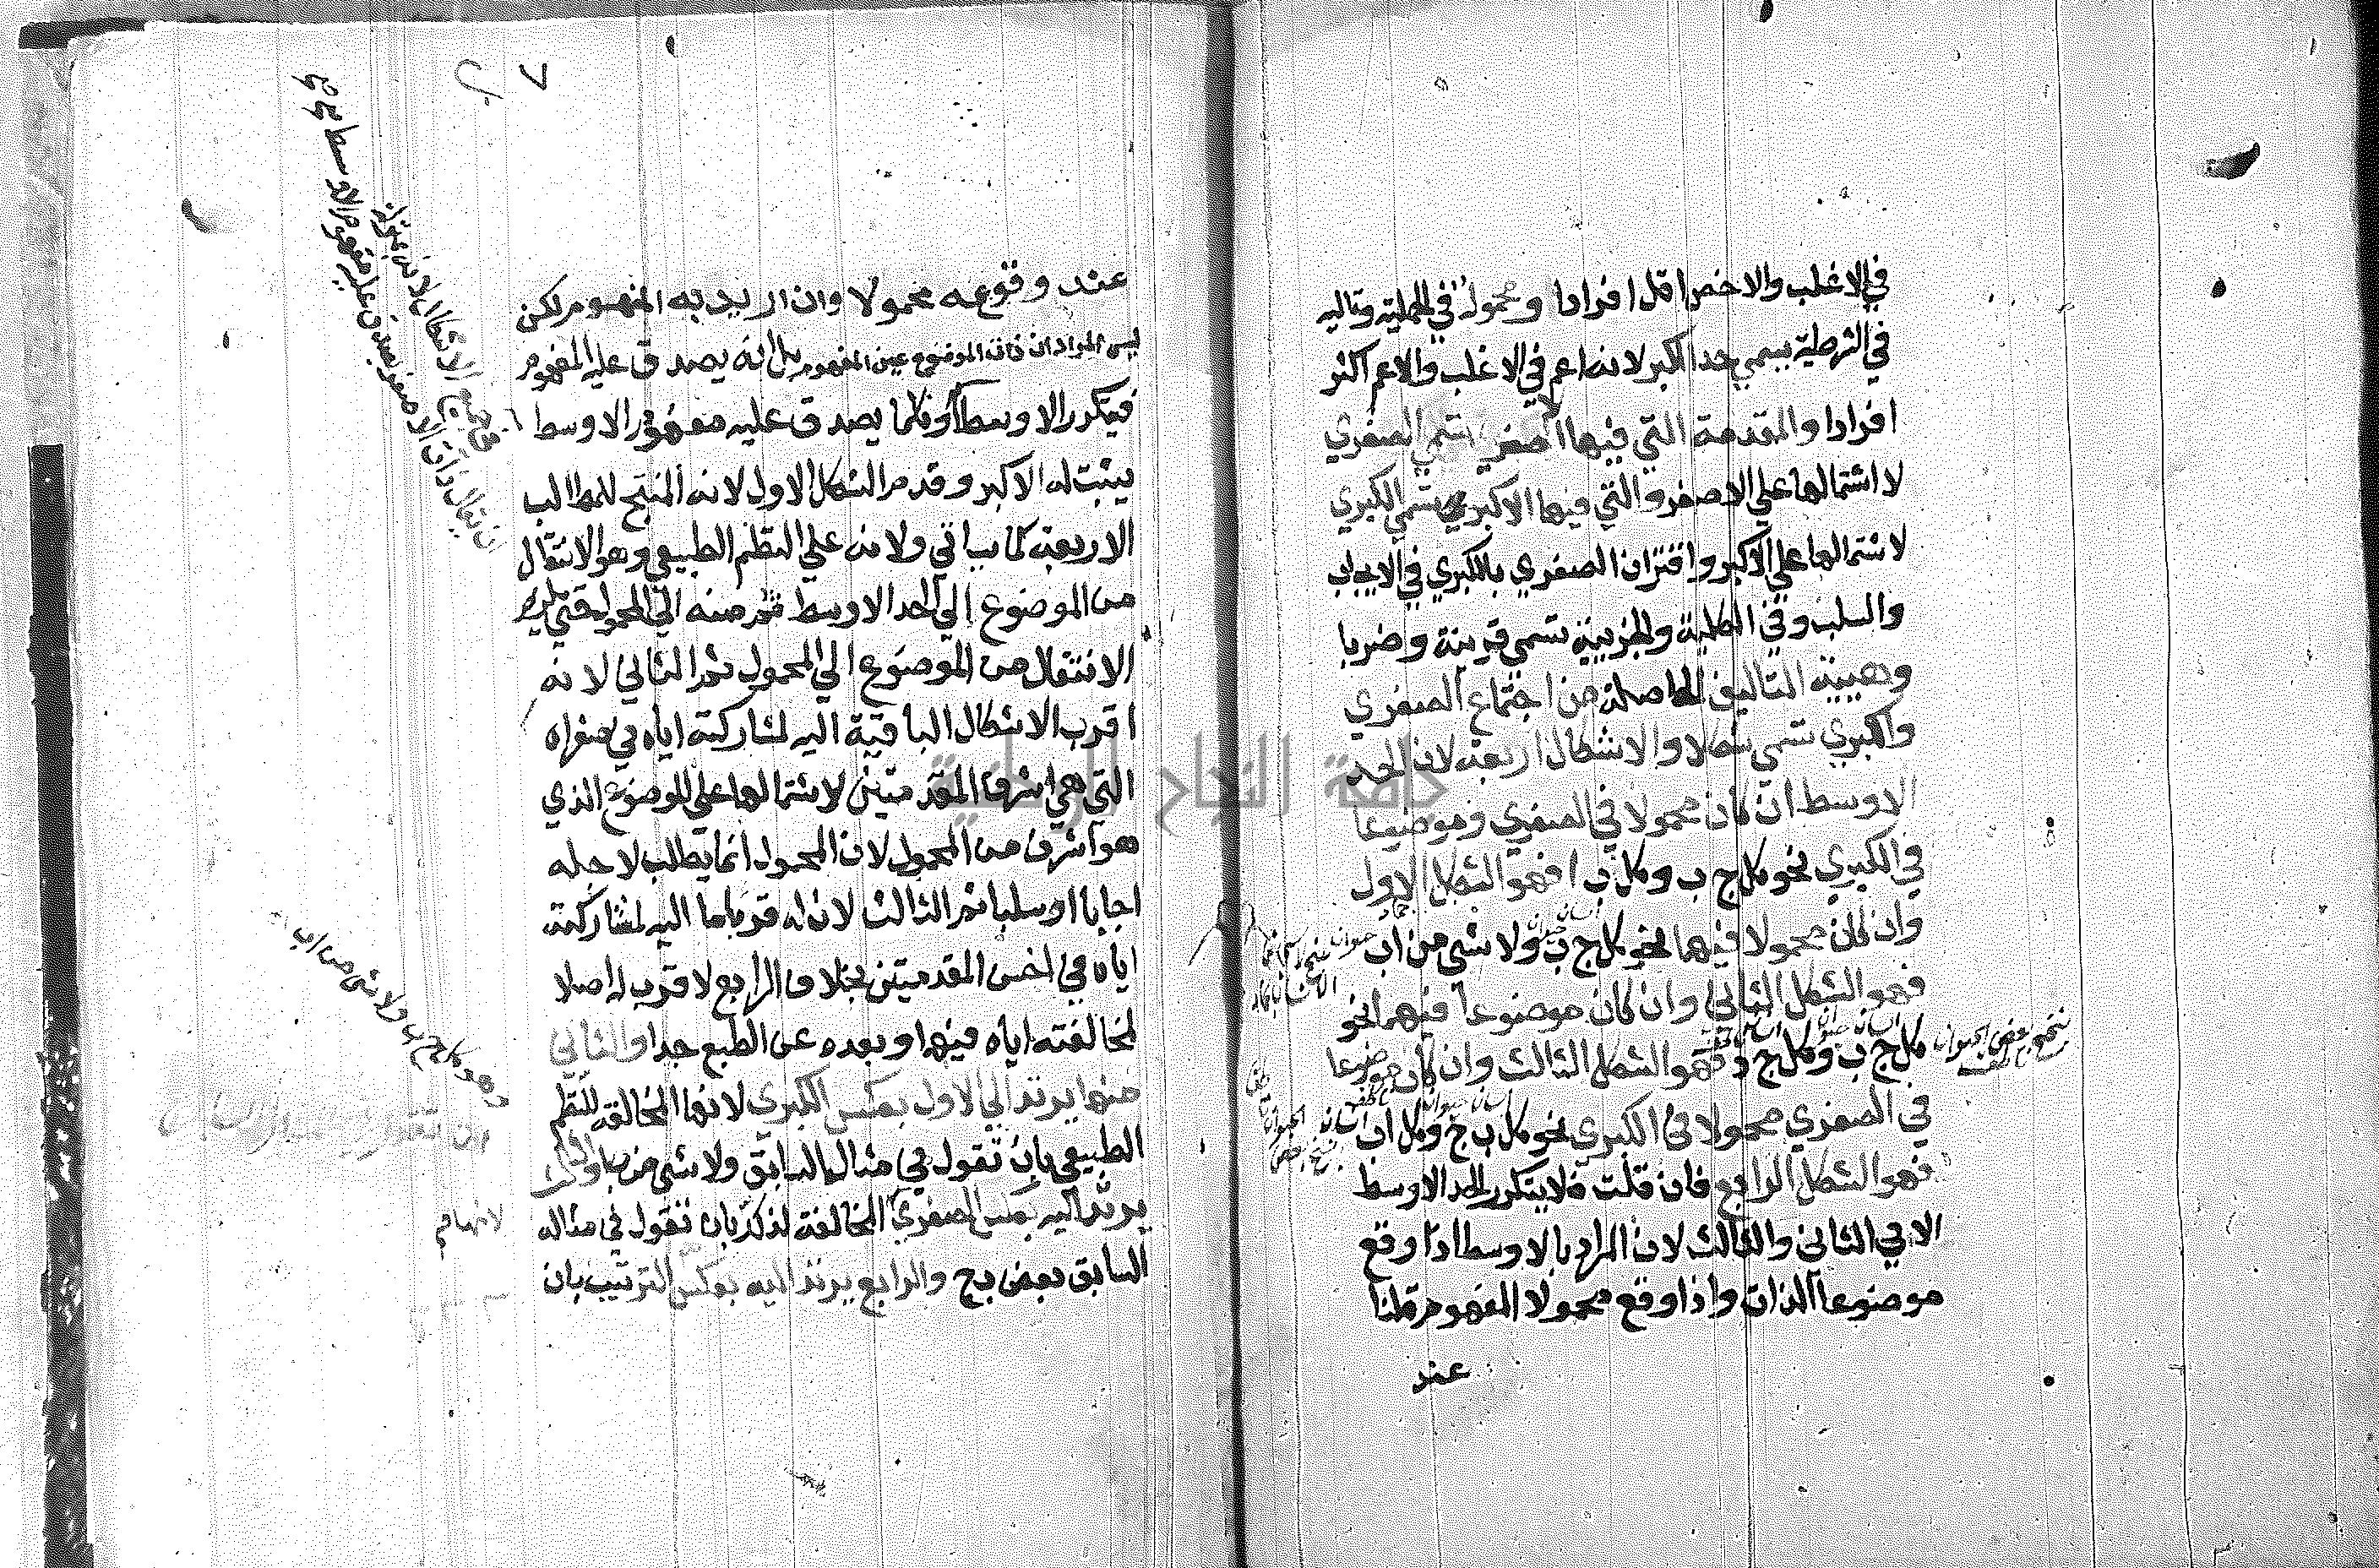 في الاغلب والاخص اقل افرادا ومحموله في الحملية وتاليه
في الشرطية يسمي حدا اكبر لانه اعم في الاغلب والاعم اكثر
افرادا والمقدمة التي فيها الاصغر تسمي الصغري
لاشتمالها علي الاصغر والتي فيها الاكبر تسمي الكبري
لاشتمالها علي الاكبر واقتران الصغري بالكبري في الايجاب
والسلب وفي الكلية والجزيية تسمي قرينة وضربا
وهيية التاليف الحاصلة من اجتماع الصغري
والكبري تسمي شكلا والاشكال اربعة لان الحد
الاوسط ان كان محمولا في الصغري وموضوعا
في الكبري نحو كل ج ب وكل ب ا فهو الشكل الاول
وان كان محمولا فيهما نحو كل ج ب ولا شي من اب
فهو الشكل الثاني وان كان موضوعا فيهما نحو
كل ج ب وكل ج د فهو الشكل الثالث وان كان موضوعا
في الصغري محمولا في الكبري نحو كل ب ج وكل اب
فهو الشكل الرابع فان قلت فلا يتكرر الحد الاوسط
الا في الثاني والثالث لان المراد بالاوسط اذا وقع
موضوعا الذات واذا وقع محمولا المفهوم قلنا
عند
٧
عند وقوعه محمولا وان اريد به المفهوم لكن
ليس المراد ان ذات الموضوع عين المفهوم بل انه يصدق عليه المفهوم
فيتكرر الاوسط او كلما يصدق عليه مفهوم الاوسط
يثبت له الاكبر وقدم الشكل الاول لانه المنتج للمطالب
الاربعة كما سياتي ولانه علي النظم الطبيعي وهو الانتقال
من الموضوع الي الحد الاوسط ثم منه الي المحمول حتي يلزم
الانتقال من الموضوع الي المحمول ثم الثاني لانه
اقرب الاشكال الباقية اليه لمشاركته اياه في صغراه
التي هي اشرف المقدمتين لاشتمالها علي الموضوع الذي
هو اشرف من المحمول لان المحمول انما يطلب لاجله
اجابا او سلبا ثم الثالث لان له قربا ما اليه لمشاركته
اياه في اخس المقدمتين بخلاف الرابع لا قرب له اصلا
لمخالفته اياه فيهما وبعده عن الطبع جدا والثاني
منها يرتد الي الاول بعكس الكبري لانها المخالفة للنظم
الطبيعي بان تقول في مثاله السابق ولا شي من با والثالث
يرتد اليه بعكس الصغري المخالفة لذلك بان تقول في مثاله
السابق بعض ب ج والرابع يرتد اليه بعكس الترتيب بان
وهو كل ج ب ولا شي من اب
جامعة النجاح الوطنية